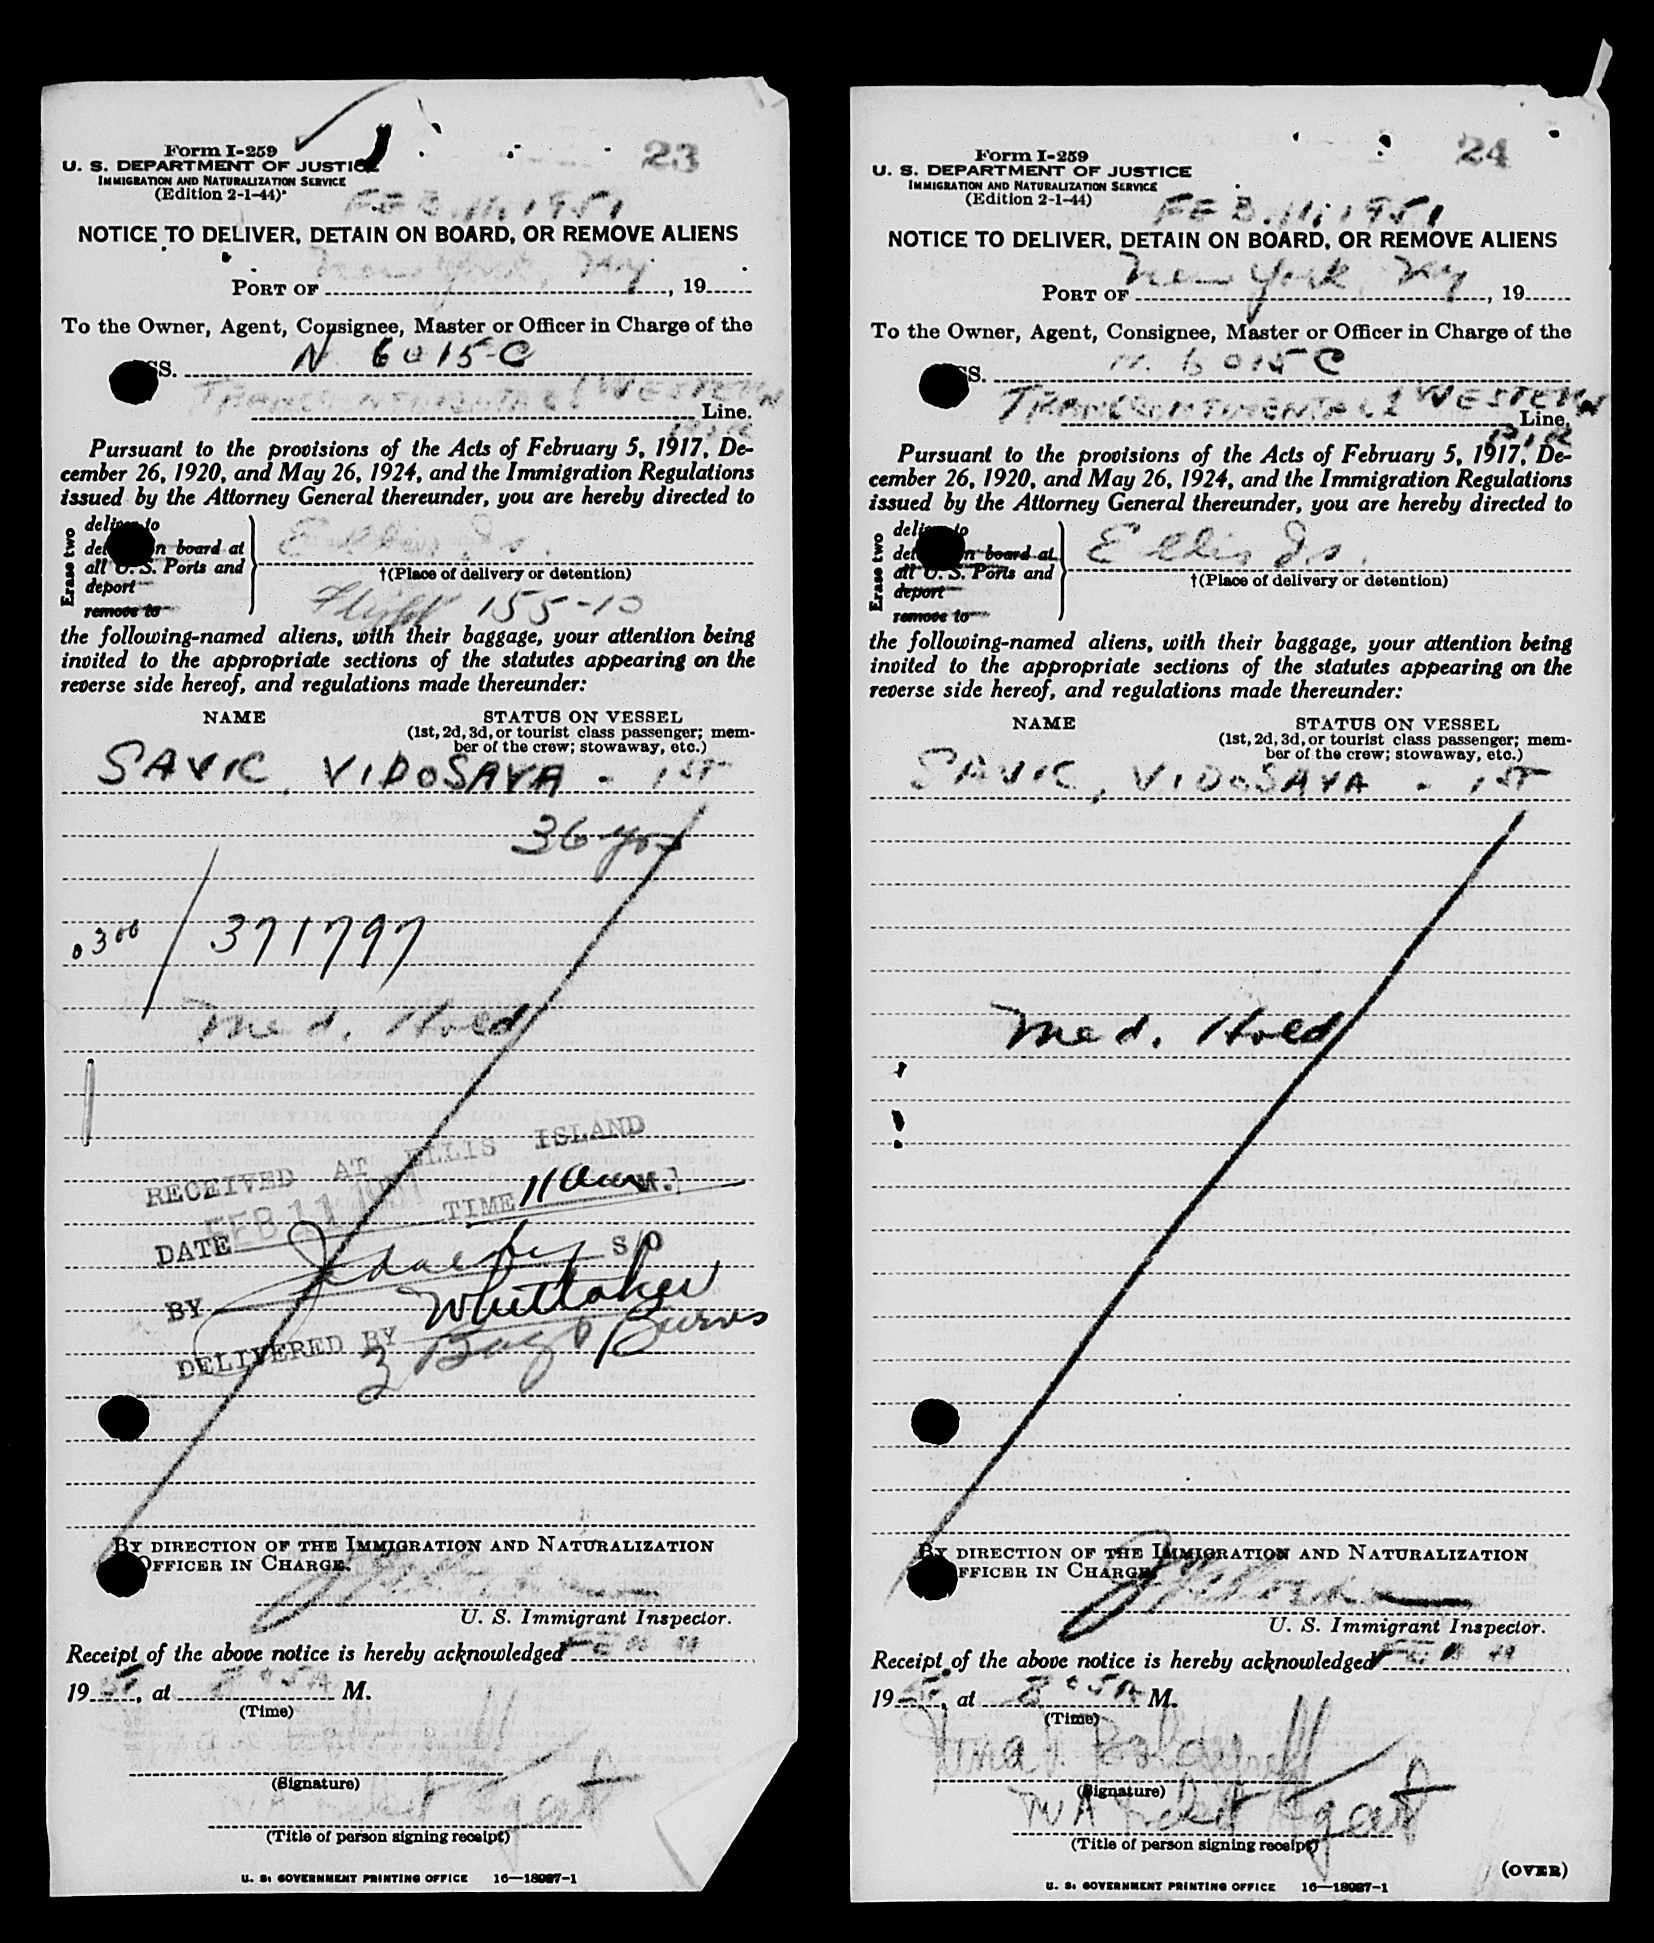 23
Form I-259
U. S. DEPARTMENT OF JUSTICE
IMMIGRATION AND NATURALIZATION SERVICE
(Edition 2-1-44)
FEB. 11, 1951
NOTICE TO DELIVER, DETAIN ON BOARD, OR REMOVE ALIENS
New York, Ny
PORT OF , 19
To the Owner, Agent, Consignee, Master or Officer in Charge of the
SS. N 6015-C
TRANSCONTINENTAL & WESTERN
AIR Line.
Pursuant to the provisions of the Acts of February 5, 1917, De-
cember 26, 1920, and May 26, 1924, and the Immigration Regulations
issued by the Attorney General thereunder, you are hereby directed to
Erase two
deliver to
n board at
all U. S. Ports and
deport
remove to
Ellis Is.
†(Place of delivery or detention)
Flight 155-10
the following-named aliens, with their baggage, your attention being
invited to the appropriate sections of the statutes appearing on the
reverse side hereof, and regulations made thereunder:
NAME STATUS ON VESSEL
(1st, 2d, 3d, or tourist class passenger; mem-
ber of the crew; stowaway, etc.)
SAVIC, VIDOSAVA - 1ST
36 yrs
0300 / 371797
Med. Hold
RECEIVED AT ELLIS ISLAND
DATE FEB 11 TIME 11 am M.
BY S/O
DELIVERED BY Whittaker
Burns
BY DIRECTION OF THE IMMIGRATION AND NATURALIZATION
OFFICER IN CHARGE.
U. S. Immigrant Inspector.
Receipt of the above notice is hereby acknowledged FEB 11
19 51, at 8 05 A M.
(Time)
(Signature)
TWA Agent
(Title of person signing receipt)
U. S. GOVERNMENT PRINTING OFFICE 16—18987-1
24
Form I-259
U. S. DEPARTMENT OF JUSTICE
IMMIGRATION AND NATURALIZATION SERVICE
(Edition 2-1-44)
FEB. 11, 1951
NOTICE TO DELIVER, DETAIN ON BOARD, OR REMOVE ALIENS
New York, Ny
PORT OF , 19
To the Owner, Agent, Consignee, Master or Officer in Charge of the
SS. N. 6015 C
TRANSCONTINENTAL & WESTERN
AIR Line.
Pursuant to the provisions of the Acts of February 5, 1917, De-
cember 26, 1920, and May 26, 1924, and the Immigration Regulations
issued by the Attorney General thereunder, you are hereby directed to
Erase two
deliver to
n board at
all U. S. Ports and
deport
remove to
Ellis Is.
†(Place of delivery or detention)
the following-named aliens, with their baggage, your attention being
invited to the appropriate sections of the statutes appearing on the
reverse side hereof, and regulations made thereunder:
NAME STATUS ON VESSEL
(1st, 2d, 3d, or tourist class passenger; mem-
ber of the crew; stowaway, etc.)
SAVIC, VIDOSAVA - 1ST
Med. Hold
BY DIRECTION OF THE IMMIGRATION AND NATURALIZATION
OFFICER IN CHARGE.
U. S. Immigrant Inspector.
Receipt of the above notice is hereby acknowledged FEB 11
19 51, at 8 05 A M.
(Time)
(Signature)
TWA Agent
(Title of person signing receipt)
(OVER)
U. S. GOVERNMENT PRINTING OFFICE 16—18987-1